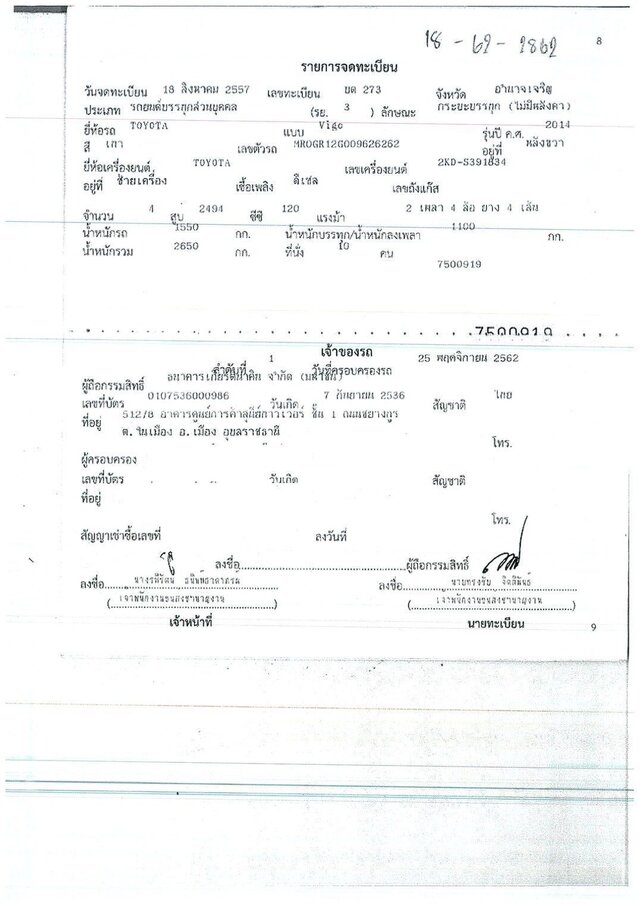 18 - 62 - 2862
8
รายการจดทะเบียน
วันจดทะเบียน 18 สิงหาคม 2557 เลขทะเบียน บต 273 จังหวัด อำนาจเจริญ
ประเภท รถยนต์บรรทุกส่วนบุคคล (รย. 3 ) ลักษณะ กระบะบรรทุก (ไม่มีหลังคา)
ยี่ห้อรถ TOYOTA แบบ Vigo รุ่นปี ค.ศ. 2014
สี เทา เลขตัวรถ MROGR12G009626262 อยู่ที่ หลังขวา
ยี่ห้อเครื่องยนต์ TOYOTA เลขเครื่องยนต์ 2KD-S391834
อยู่ที่ ซ้ายเครื่อง เชื้อเพลิง ดีเซล เลขถังแก๊ส
จำนวน 4 สูบ 2494 ซีซี 120 แรงม้า 2 เพลา 4 ล้อ ยาง 4 เส้น
น้ำหนักรถ 1550 กก. น้ำหนักบรรทุก/น้ำหนักลงเพลา 1100 กก.
น้ำหนักรวม 2650 กก. ที่นั่ง คน
7500919
7500919
เจ้าของรถ
ลำดับที่ 1 วันที่ครอบครองรถ 25 พฤศจิกายน 2562
ผู้ถือกรรมสิทธิ์ ธนาคารเกียรตินาคิน จำกัด (มหาชน)
เลขที่บัตร 0107536000986 วันเกิด 7 กันยายน 2536 สัญชาติ ไทย
ที่อยู่ 512/8 อาคารศูนย์การค้าสุนีย์ทาวเวอร์ ชั้น 1 ถนนชยางกูร
ต.ในเมือง อ.เมือง อุบลราชธานี
โทร.
ผู้ครอบครอง
เลขที่บัตร วันเกิด สัญชาติ
ที่อยู่
โทร.
สัญญาเช่าซื้อเลขที่ ลงวันที่
ลงชื่อ ผู้ถือกรรมสิทธิ์
ลงชื่อ ลงชื่อ
(เจ้าพนักงานขนส่งชำนาญงาน) (เจ้าพนักงานขนส่งชำนาญงาน)
เจ้าหน้าที่ นายทะเบียน
9